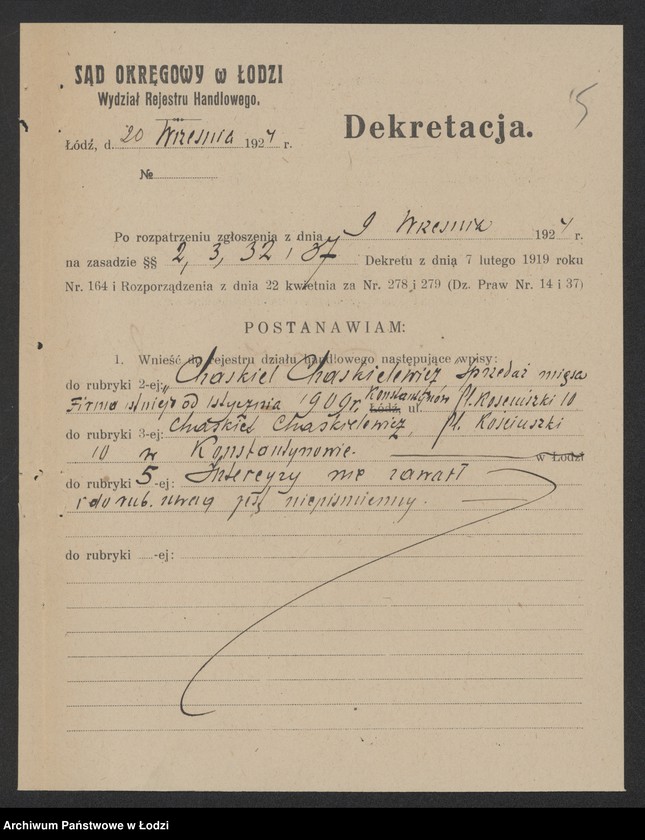 5
SĄD OKRĘGOWY w ŁODZI
Wydział Rejestru Handlowego.
Dekretacja.
Łódź, d. 20 Września 1924 r.
№
Po rozpatrzeniu zgłoszenia z dnia 9 Września 1924 r.
na zasadzie §§ 2, 3, 32 i 37 Dekretu z dnia 7 lutego 1919 roku
Nr. 164 i Rozporządzenia z dnia 22 kwietnia za Nr. 278 i 279 (Dz. Praw Nr. 14 i 37)
POSTANAWIAM:
1. Wnieść do rejestru działu handlowego następujące wpisy:
do rubryki 2-ej: „Chaskiel Chaskielewicz" sprzedaż mięsa
Firma istnieje od 1 stycznia 1909 r. Konstantynów Łódź, ul. Pl. Kościuszki 10
do rubryki 3-ej: Chaskiel Chaskielewicz, Pl. Kościuszki
10 w Konstantynowie. w Łodzi
do rubryki 5-ej: Intercyzy nie zawarł
i do rub. uwag jest niepiśmienny.
do rubryki -ej:
Archiwum Państwowe w Łodzi